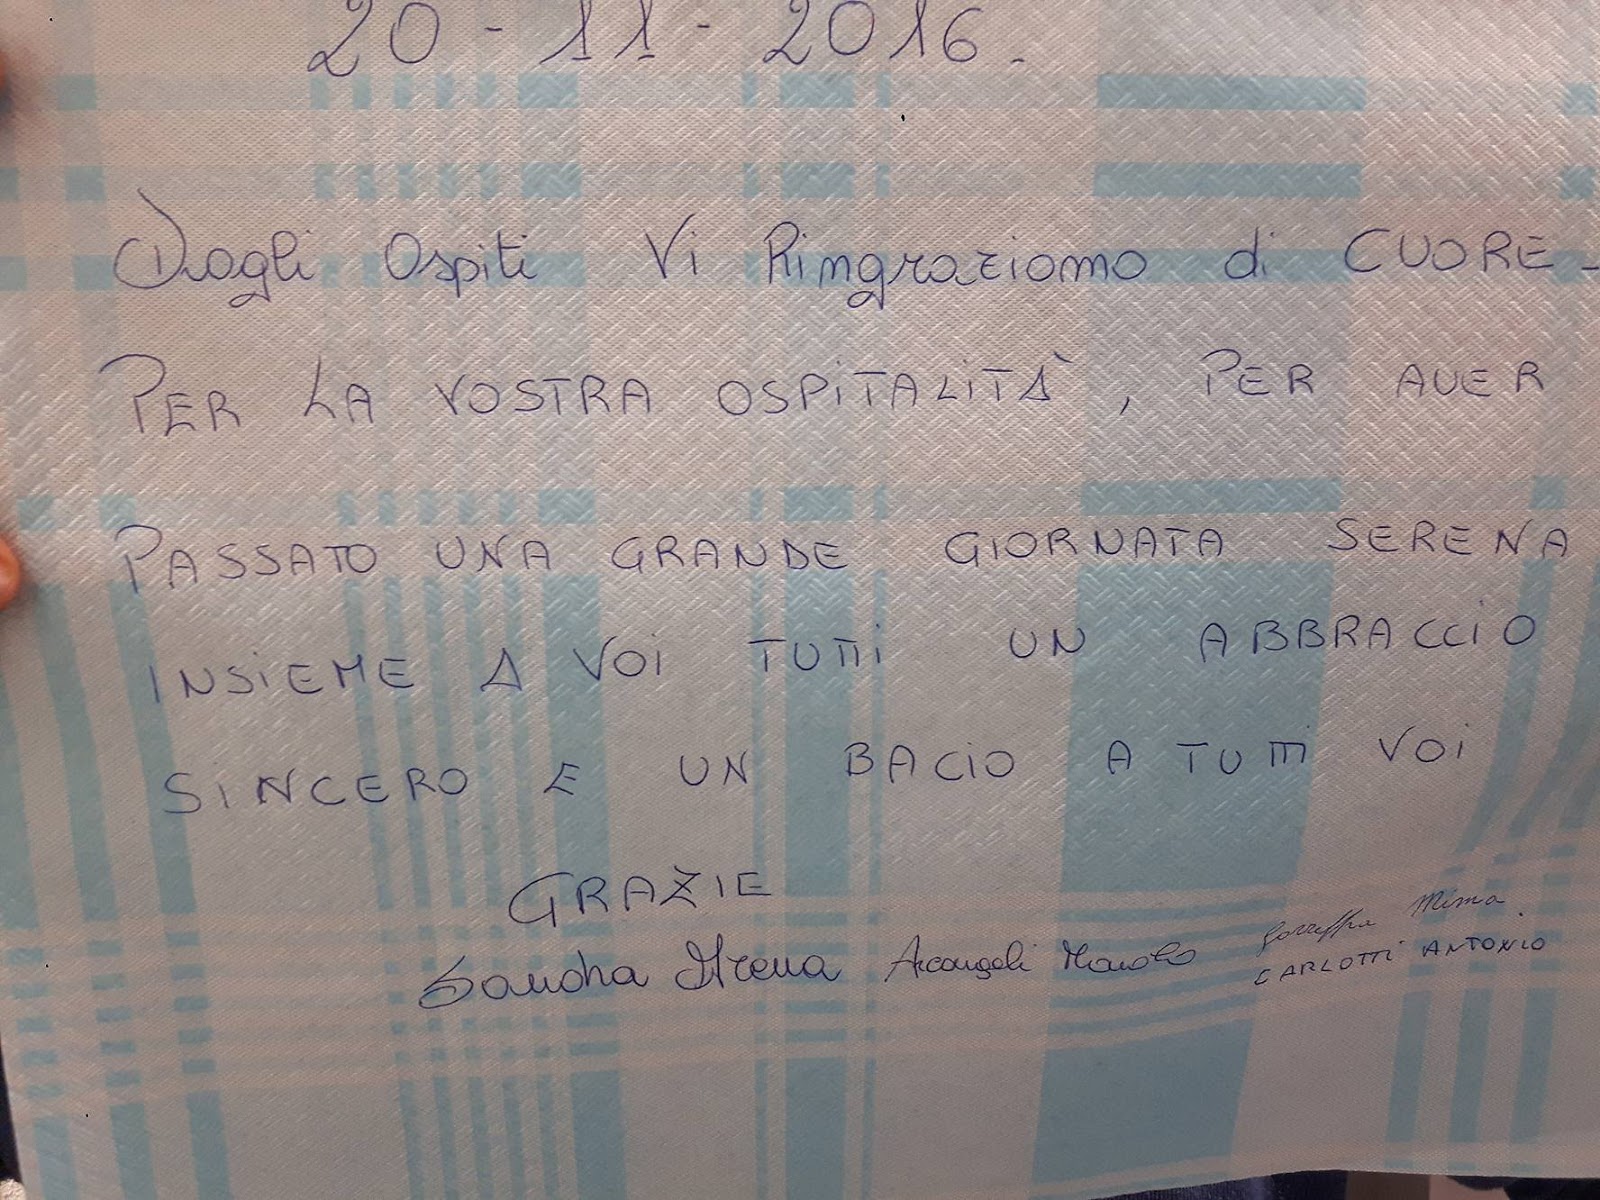 20-11-2016.
Dagli Ospiti Vi Ringraziamo di CUORE-
PER LA VOSTRA OSPITALITÀ, PER AVER
PASSATO UNA GRANDE GIORNATA SERENA
INSIEME A VOI TUTTI UN ABBRACCIO
SINCERO E UN BACIO A TUTTI VOI
GRAZIE
Sandra Arcangeli
CARLOTTI ANTONIO